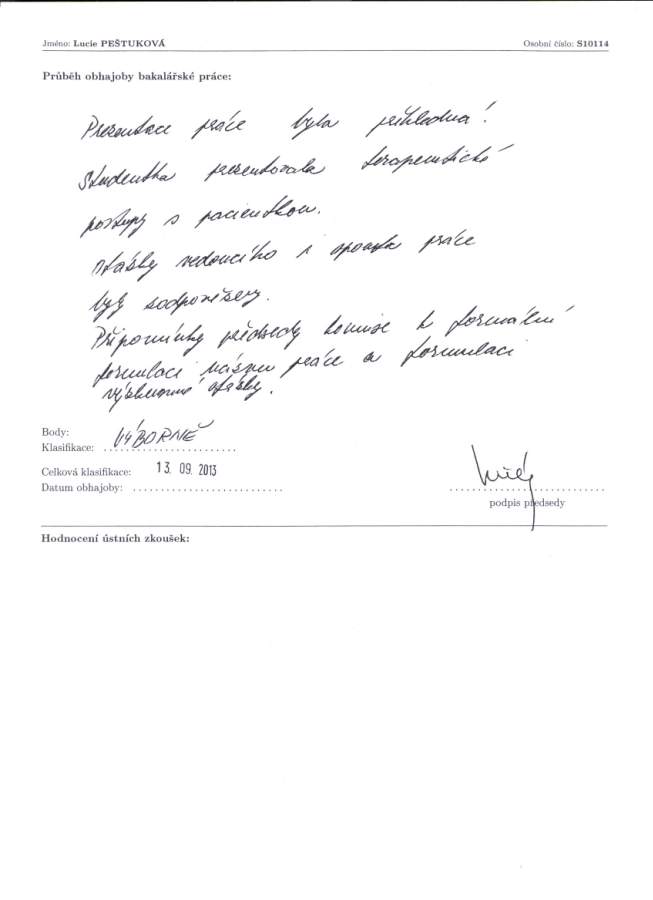 Jméno: Lucie PEŠTUKOVÁ Osobní číslo: S10114
Průběh obhajoby bakalářské práce:
Prezentace práce byla přehledná.
Studentka prezentovala terapeutické
postupy s pacientkou.
Otázky vedoucího i oponenta práce
byly zodpovězeny.
Připomínky předsedy komise k formální
formulaci názvu práce a formulaci
výzkumné otázky.
Body:
Klasifikace: VÝBORNĚ
Celková klasifikace: 13. 09. 2013
Datum obhajoby:
podpis předsedy
Hodnocení ústních zkoušek: